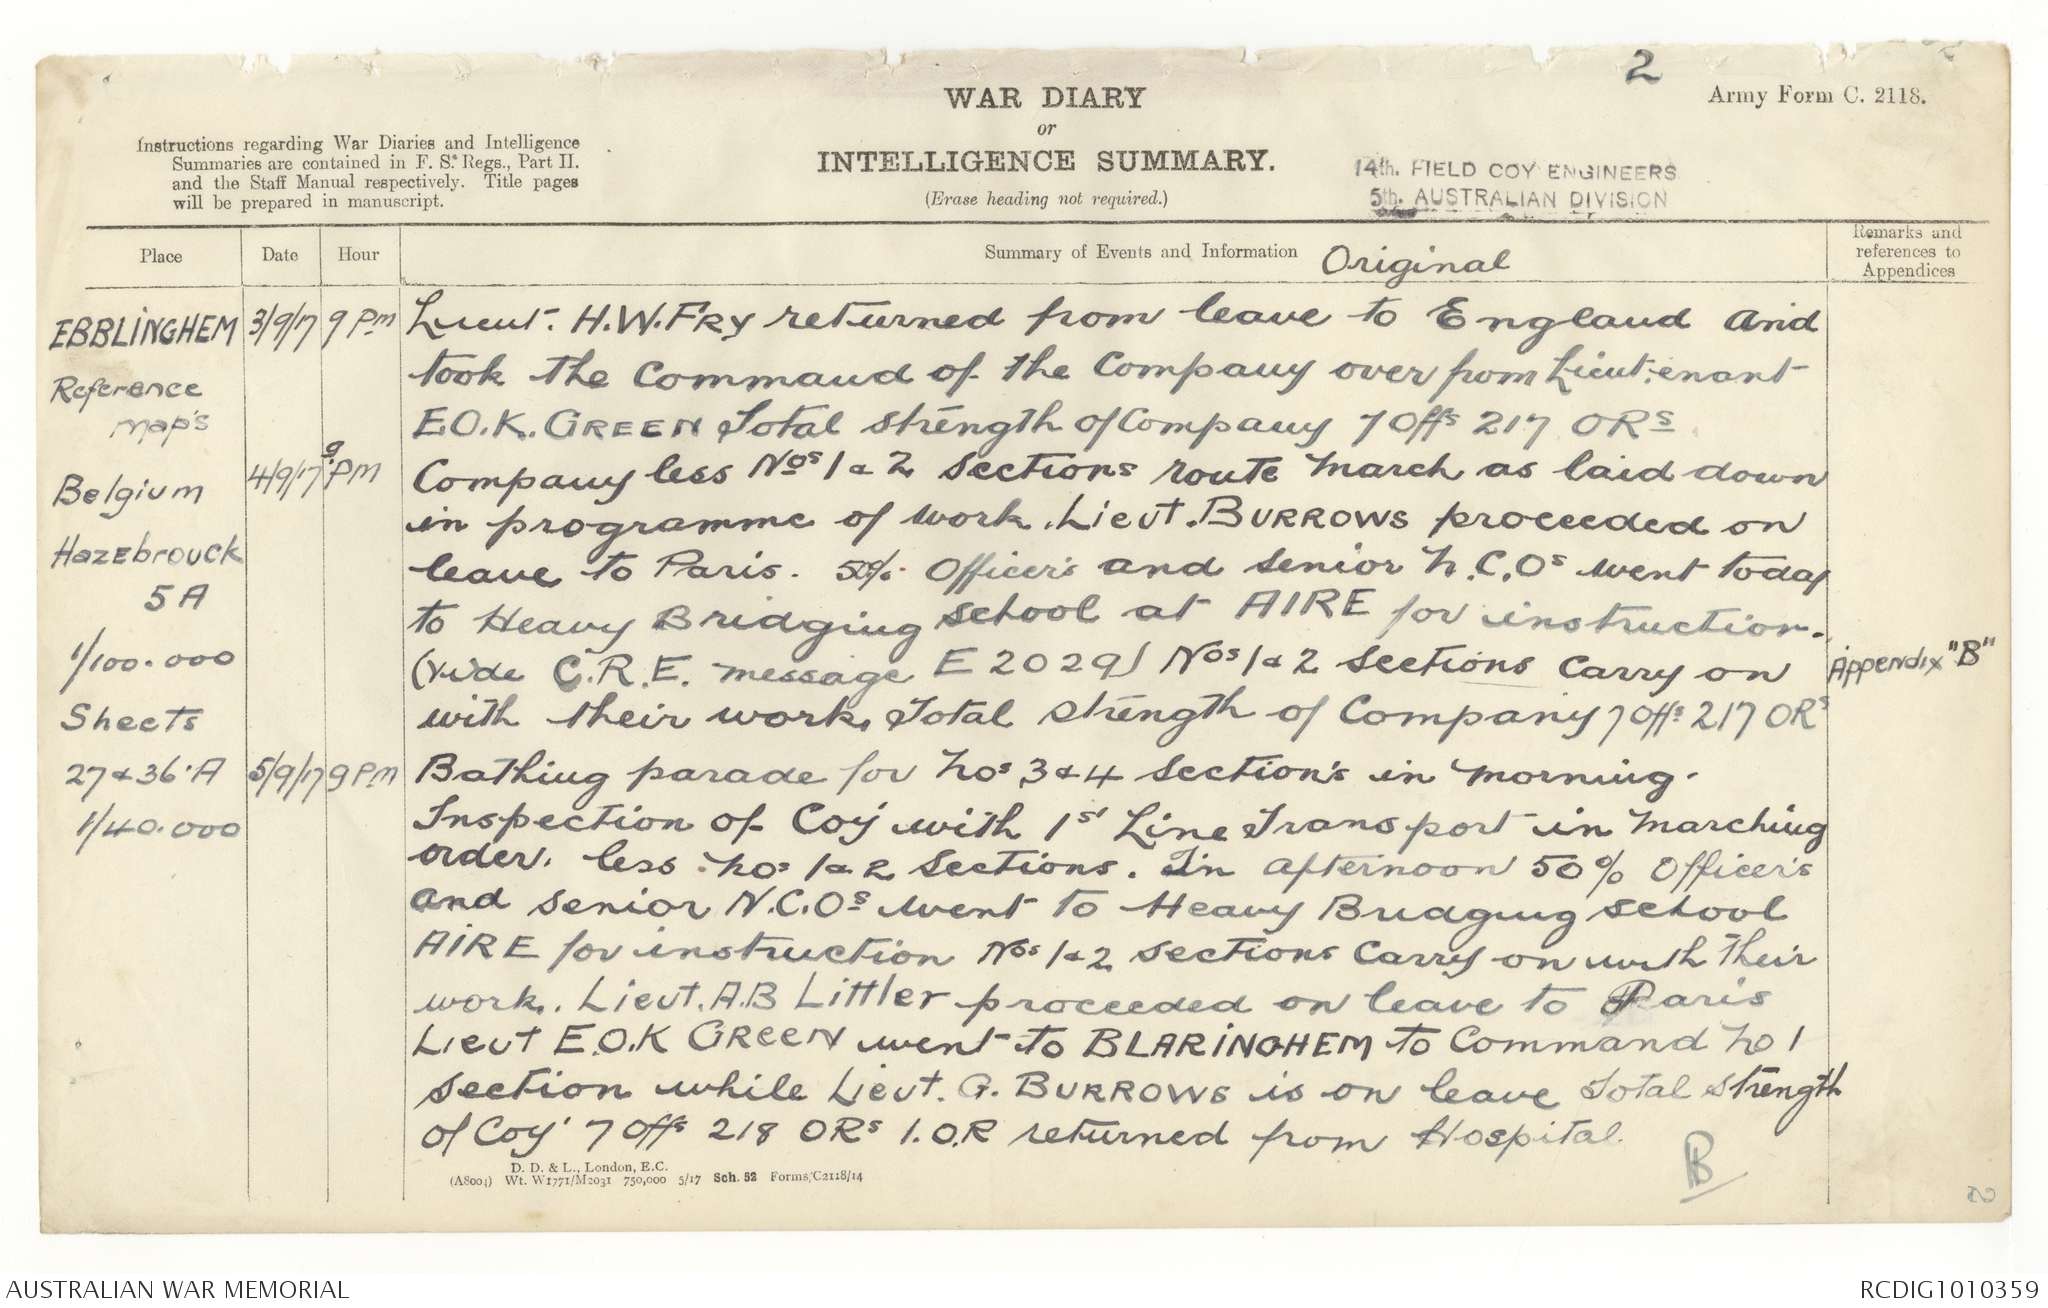 2
WAR DIARY
or
INTELLIGENCE SUMMARY.
(Erase heading not required.)
Army Form C. 2118.
Instructions regarding War Diaries and Intelligence
Summaries are contained in F. S. Regs., Part II.
and the Staff Manual respectively. Title pages
will be prepared in manuscript.
14th. FIELD COY ENGINEERS
5th. AUSTRALIAN DIVISION
Place
Date
Hour
Summary of Events and Information
Original
Remarks and
references to
Appendices
EBBLINGHEM 3/9/17 9 Pm Lieut. H.W. FRY returned from leave to England and
took the Command of the Company over from Lieut;enant
E.O.K. GREEN Total strength of Company 7 Offs 217 ORs.
4/9/17 9 PM Company less Nos 1 & 2 sections route march as laid down
in programme of work. Lieut. BURROWS proceeded on
leave to Paris. 50% Officer's and senior N.C.Os went today
to Heavy Bridging school at AIRE for instruction.
(Vide C.R.E. message E 2029) Nos 1 & 2 sections carry on
with their work. Total strength of Company 7 Offs 217 ORs
Appendix "B"
5/9/17 9 PM Bathing parade for Nos 3 & 4 section's in morning.
Inspection of Coy with 1st Line Transport in marching
order. less Nos 1 & 2 sections. In afternoon 50% Officer's
and senior N.C.Os went to Heavy Bridging school
AIRE for instruction Nos 1 & 2 sections carry on with their
work. Lieut. A.B Littler proceeded on leave to Paris
Lieut E.O.K GREEN went to BLARINGHEM to Command No 1
section while Lieut. G. BURROWS is on leave Total strength
of Coy 7 Offs 218 ORs 1.O.R returned from Hospital.
Reference
map's
Belgium
Hazebrouck
5A
1/100.000
Sheets
27 & 36.A
1/40.000
B
D. D. & L., London, E.C.
(A8004) Wt. W1771/M2031 750,000 5/17 Sch. 52 Forms/C2118/14
2
AUSTRALIAN WAR MEMORIAL
RCDIG1010359